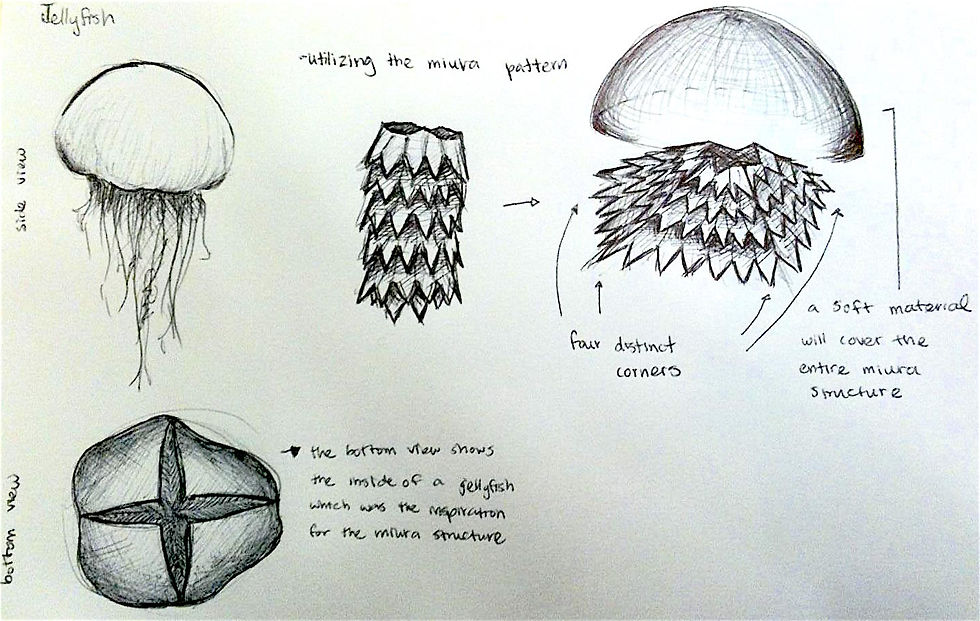 Jellyfish
-utilizing the miura pattern
side view
four distinct
corners
a soft material
will cover the
entire miura
structure
the bottom view shows
the inside of a jellyfish
which was the inspiration
for the miura structure
bottom view